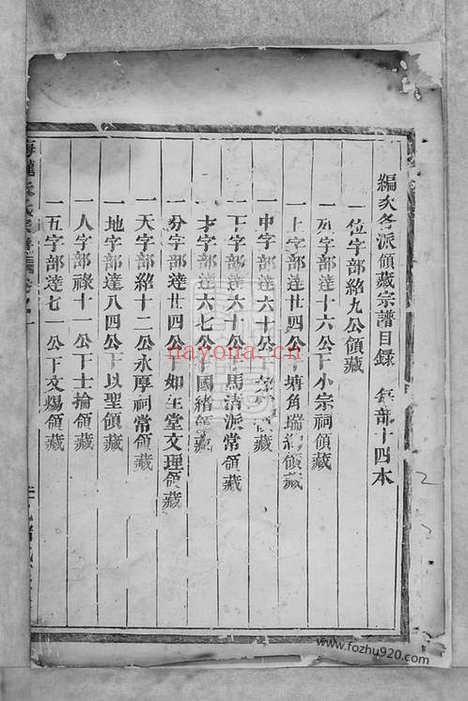 編次各派領藏宗譜目錄 每部十四本
一位字部紹九公領藏
一列字部達十六公下小宗祠領藏
一上字部達廿四公下塘角瑞 領藏
一中字部達六十公下 領藏
一下字部達六十公下馬清派常領藏
一才字部達六七公下國緒領藏
一分字部達廿四公下如在堂文理領藏
一天字部紹十二公永厚祠常領藏
一地字部達八四公下以聖領藏
一人字部祿十一公下士掄領藏
一五字部達七一公下文煬領藏
nayona.cn
www.fozhu920.com